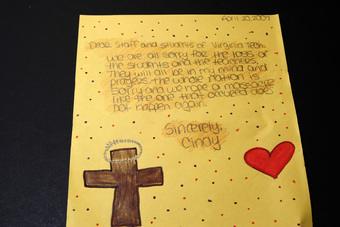 April 20, 2007
Dear Staff and students of Virginia Tech,
We are all sorry for the loss of
the students and the teachers,
They will all be in my mind and
prayers. the whole nation is
sorry and we hope a massacre
like the one that occured does
not happen again.
Sincerely,
Cindy